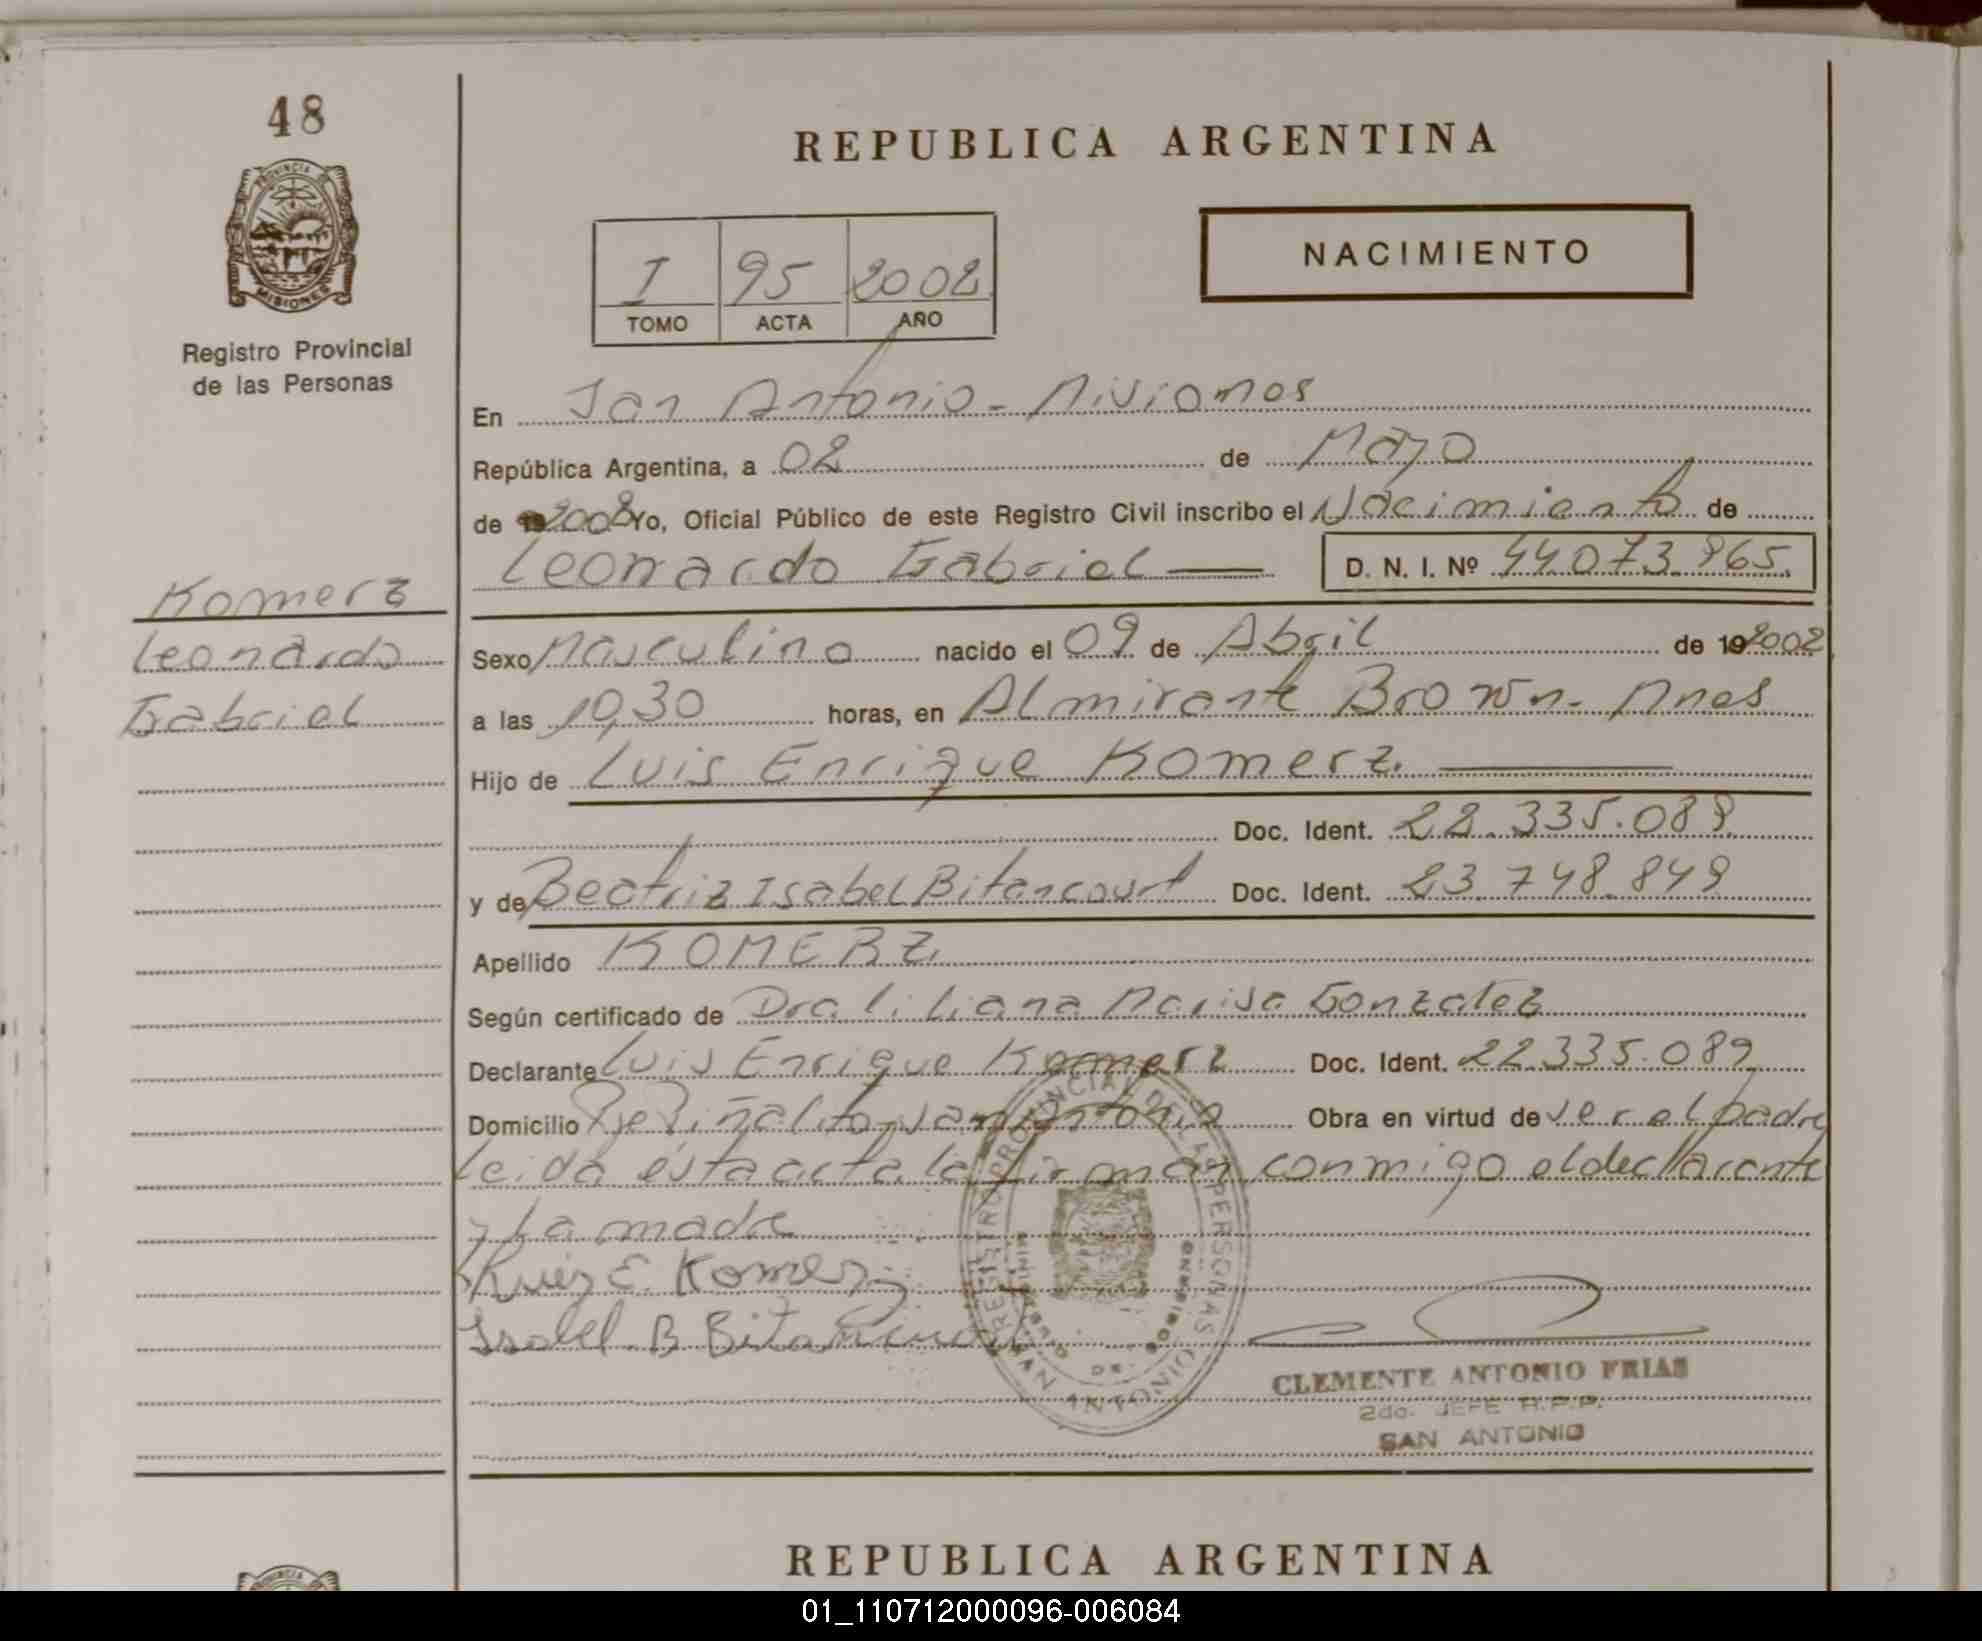 48
REPUBLICA ARGENTINA
PROVINCIA DE
MISIONES
Registro Provincial
de las Personas
I 95 2002
TOMO ACTA AÑO
NACIMIENTO
En San Antonio - Misiones
República Argentina, a 02 de Mayo
de 2002 Yo, Oficial Público de este Registro Civil inscribo el Nacimiento de
Leonardo Gabriel D. N. I. Nº 44.073.965.
Komerz
Leonardo
Gabriel
Sexo Masculino nacido el 09 de Abril de 192002
a las 10,30 horas, en Almirante Brown - Mnes
Hijo de Luis Enrique Komerz.
Doc. Ident. 22.335.089
y de Beatriz Isabel Bitancourt Doc. Ident. 23.748.849
Apellido KOMERZ.
Según certificado de Dra Liliana Marisa Gonzalez
Declarante Luis Enrique Komerz Doc. Ident. 22.335.089
Domicilio Pje Piñalito - San Antonio Obra en virtud de ser el padre
Leida ésta acta la firman conmigo el declarante
y la madre
Luiz E. Komerz
Isabel. B Bitancourt
REGISTRO PROVINCIAL DE LAS PERSONAS
MINISTERIO DE GOBIERNO
SAN ANTONIO
CLEMENTE ANTONIO FRIAS
2do. JEFE R.P.P.
SAN ANTONIO
REPUBLICA ARGENTINA
PROVINCIA DE
01_110712000096-006084